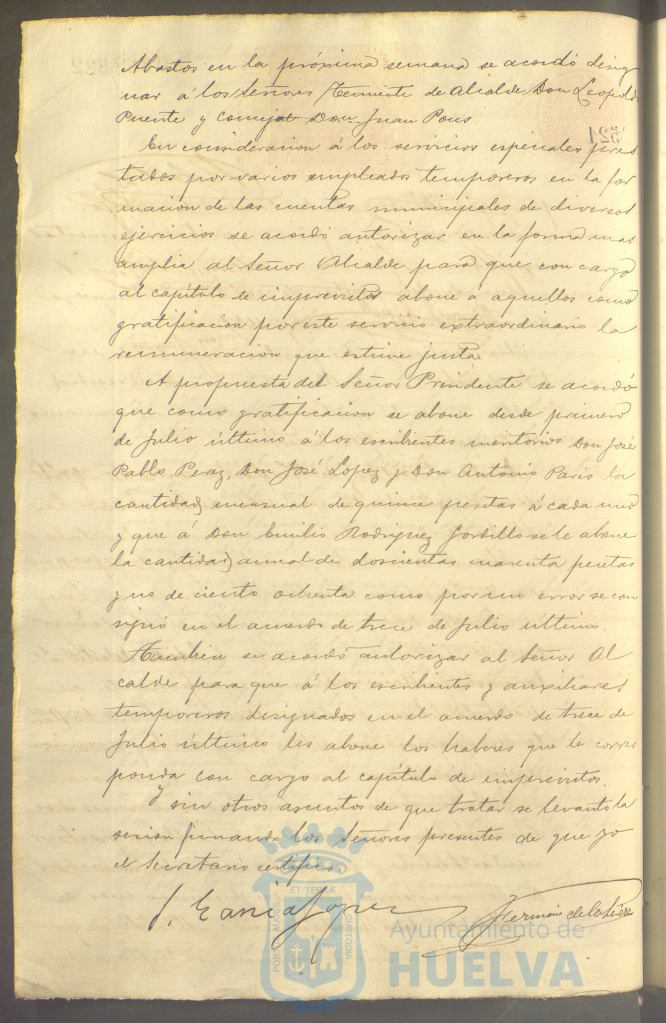 Abastos en la próxima semana se acordó desig
nar á los Señores Teniente de Alcalde Don Leopoldo
Puente y Concejal Don Juan Pons
En consideracion á los servicios especiales pres
tados por varios empleados temporeros en la for
macion de las cuentas municipales de diversos
ejercicios se acordó autorizar en la forma mas
amplia al Señor Alcalde para que con cargo
al capítulo de imprevistos abone á aquellos como
gratificacion por este servicio extraordinario la
remuneracion que estime justa
A propuesta del Señor Presidente se acordó
que como gratificacion se abone desde primero
de Julio último á los escribientes meritorios Don José
Pablo Perez, Don José Lopez y Don Antonio Paris la
cantidad mensual de quince pesetas á cada uno
y que á Don Emilio Rodriguez Gordillo se le abone
la cantidad anual de doscientas cuarenta pesetas
y no de ciento ochenta como por un error se con
signó en el acuerdo de trece de Julio último.
Tambien se acordó autorizar al Señor Al
calde para que á los escribientes y auxiliares
temporeros designados en el acuerdo de trece de
Julio último les abone los haberes que le corres
ponda con cargo al capítulo de imprevistos.
Y sin otros asuntos de que tratar se levantó la
sesion firmando los Señores presentes de que yo
el Secretario certifico.
J. Garcia Lopez
Ayuntamiento de
HUELVA